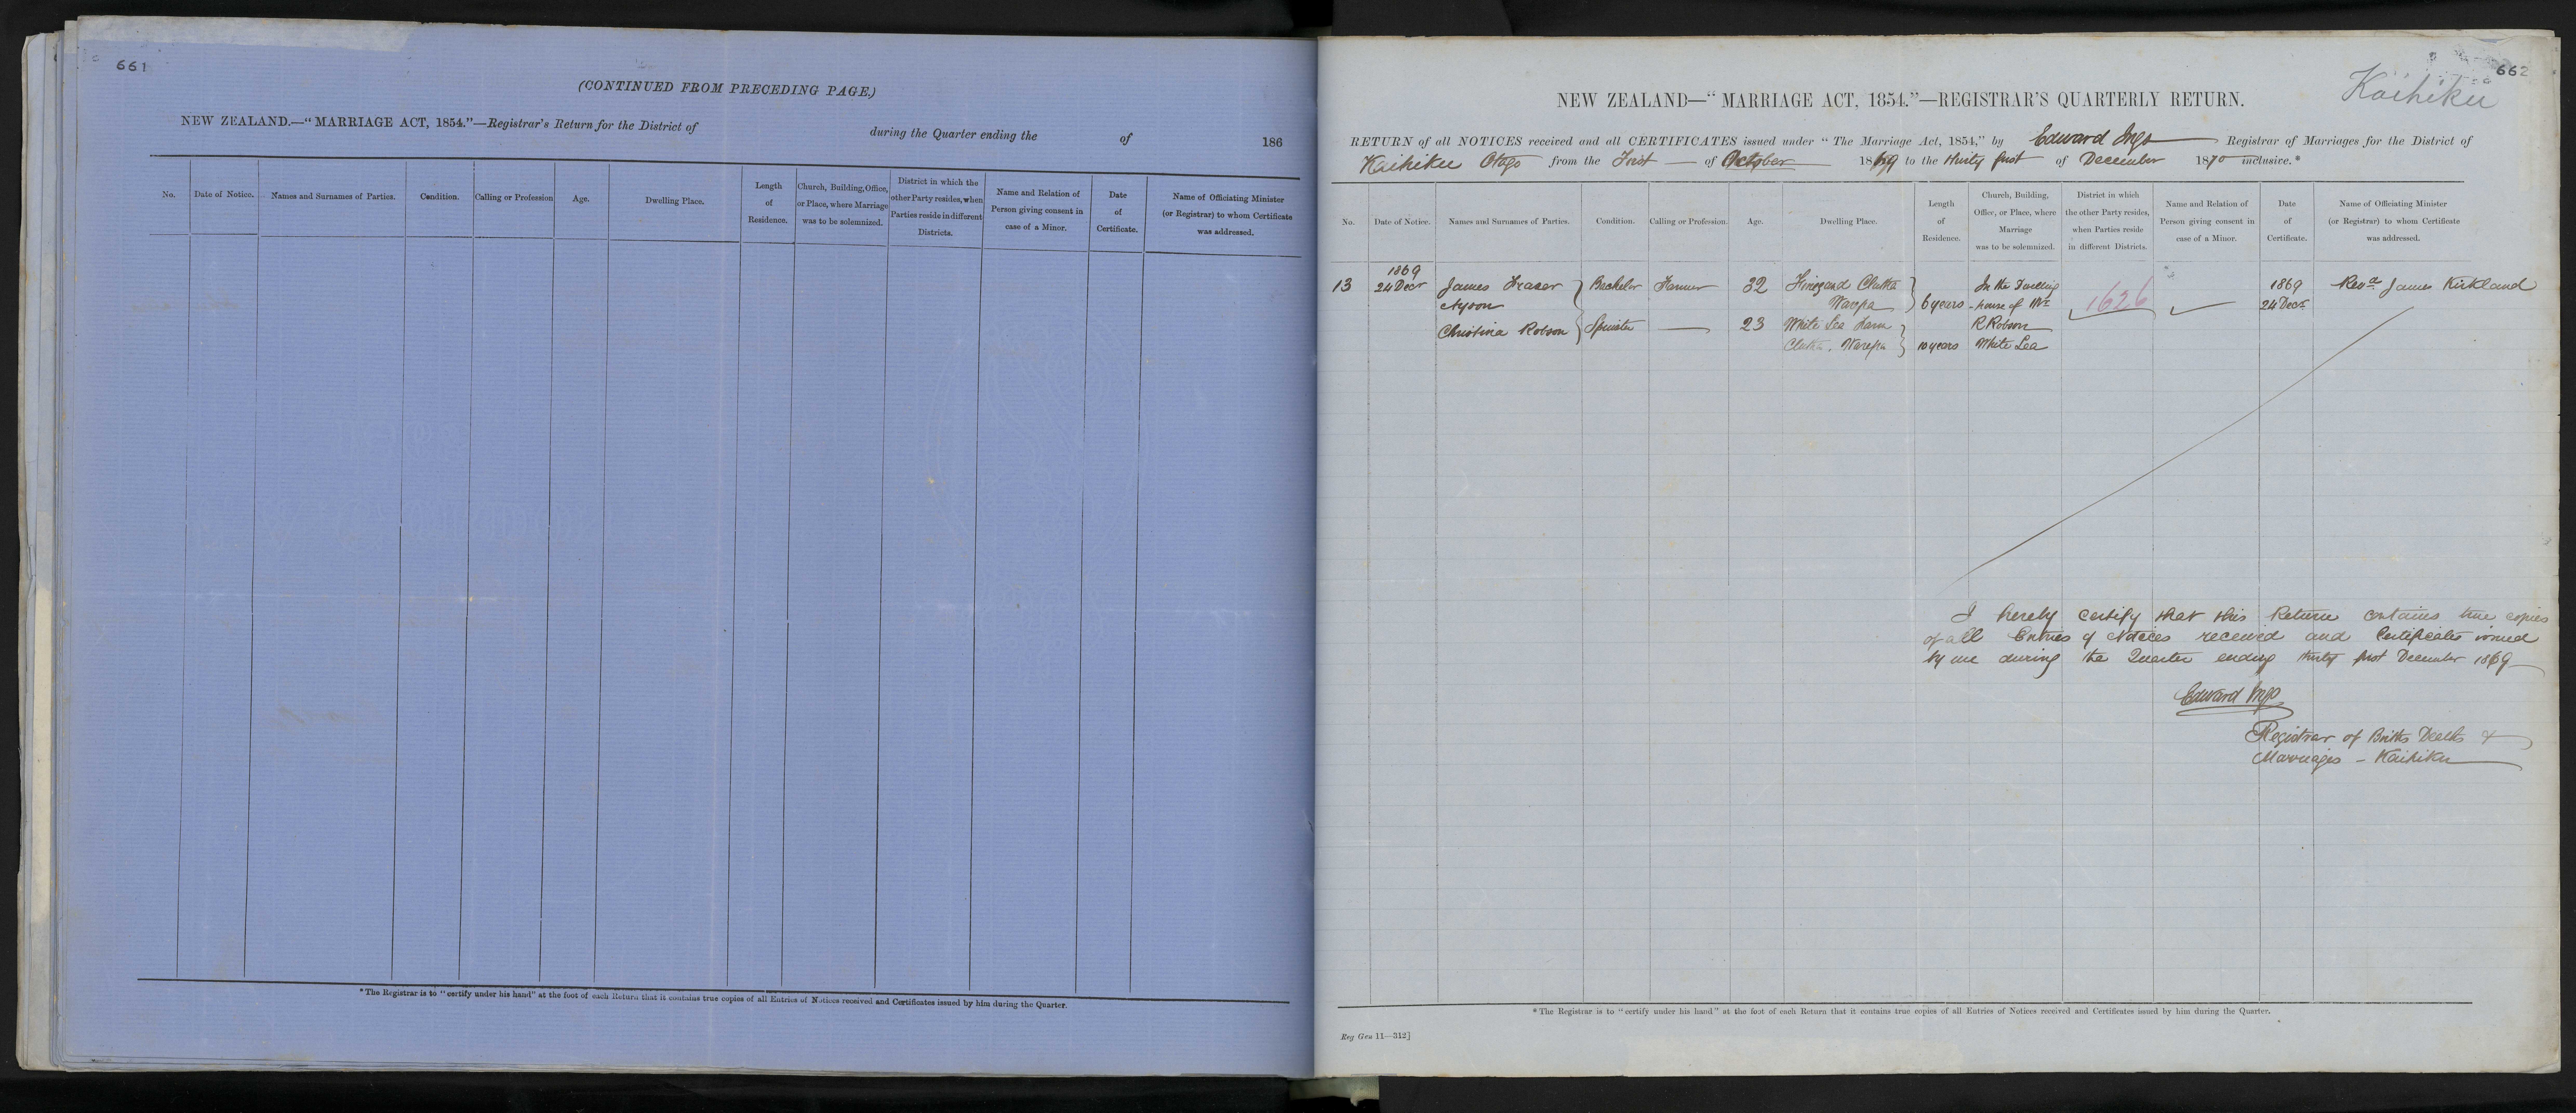 661
(CONTINUED FROM PRECEDING PAGE.)
NEW ZEALAND.—"MARRIAGE ACT, 1854."—Registrar's Return for the District of during the Quarter ending the of 186
No.
Date of Notice.
Names and Surnames of Parties.
Condition.
Calling or Profession
Age.
Dwelling Place.
Length
of
Residence.
Church, Building, Office,
or Place, where Marriage
was to be solemnized.
District in which the
other Party resides, when
Parties reside in different
Districts.
Name and Relation of
Person giving consent in
case of a Minor.
Date
of
Certificate.
Name of Officiating Minister
(or Registrar) to whom Certificate
was addressed.
*The Registrar is to "certify under his hand" at the foot of each Return that it contains true copies of all Entries of Notices received and Certificates issued by him during the Quarter.
662
Kaihiku
NEW ZEALAND—"MARRIAGE ACT, 1854."—REGISTRAR'S QUARTERLY RETURN.
RETURN of all NOTICES received and all CERTIFICATES issued under "The Marriage Act, 1854," by Edward Ings Registrar of Marriages for the District of
Kaihiku Otago from the First of October 1869 to the thirty first of December 1870 inclusive.*
No.
Date of Notice.
Names and Surnames of Parties.
Condition.
Calling or Profession.
Age.
Dwelling Place.
Length
of
Residence.
Church, Building,
Office, or Place, where
Marriage
was to be solemnized.
District in which
the other Party resides,
when Parties reside
in different Districts.
Name and Relation of
Person giving consent in
case of a Minor.
Date
of
Certificate.
Name of Officiating Minister
(or Registrar) to whom Certificate
was addressed.
1869
13 24 Decr James Fraser Bachelor Farmer 32 Clutha In the Dwelling 1869 Revd. James Kirkland
Warepa 6 years house of Mr 1626 24 Decr
Christina Robson Spinster 23 White Lea Farm R Robson
Clutha, Warepa 10 years White Lea
I hereby certify that this Return contains true copies
of all Entries of Notices received and Certificates issued
by me during the Quarter ending thirty first December 1869
Edward Ings
Registrar of Births Deaths &
Marriages – Kaihiku
*The Registrar is to "certify under his hand" at the foot of each Return that it contains true copies of all Entries of Notices received and Certificates issued by him during the Quarter.
Reg Gen 11—312]